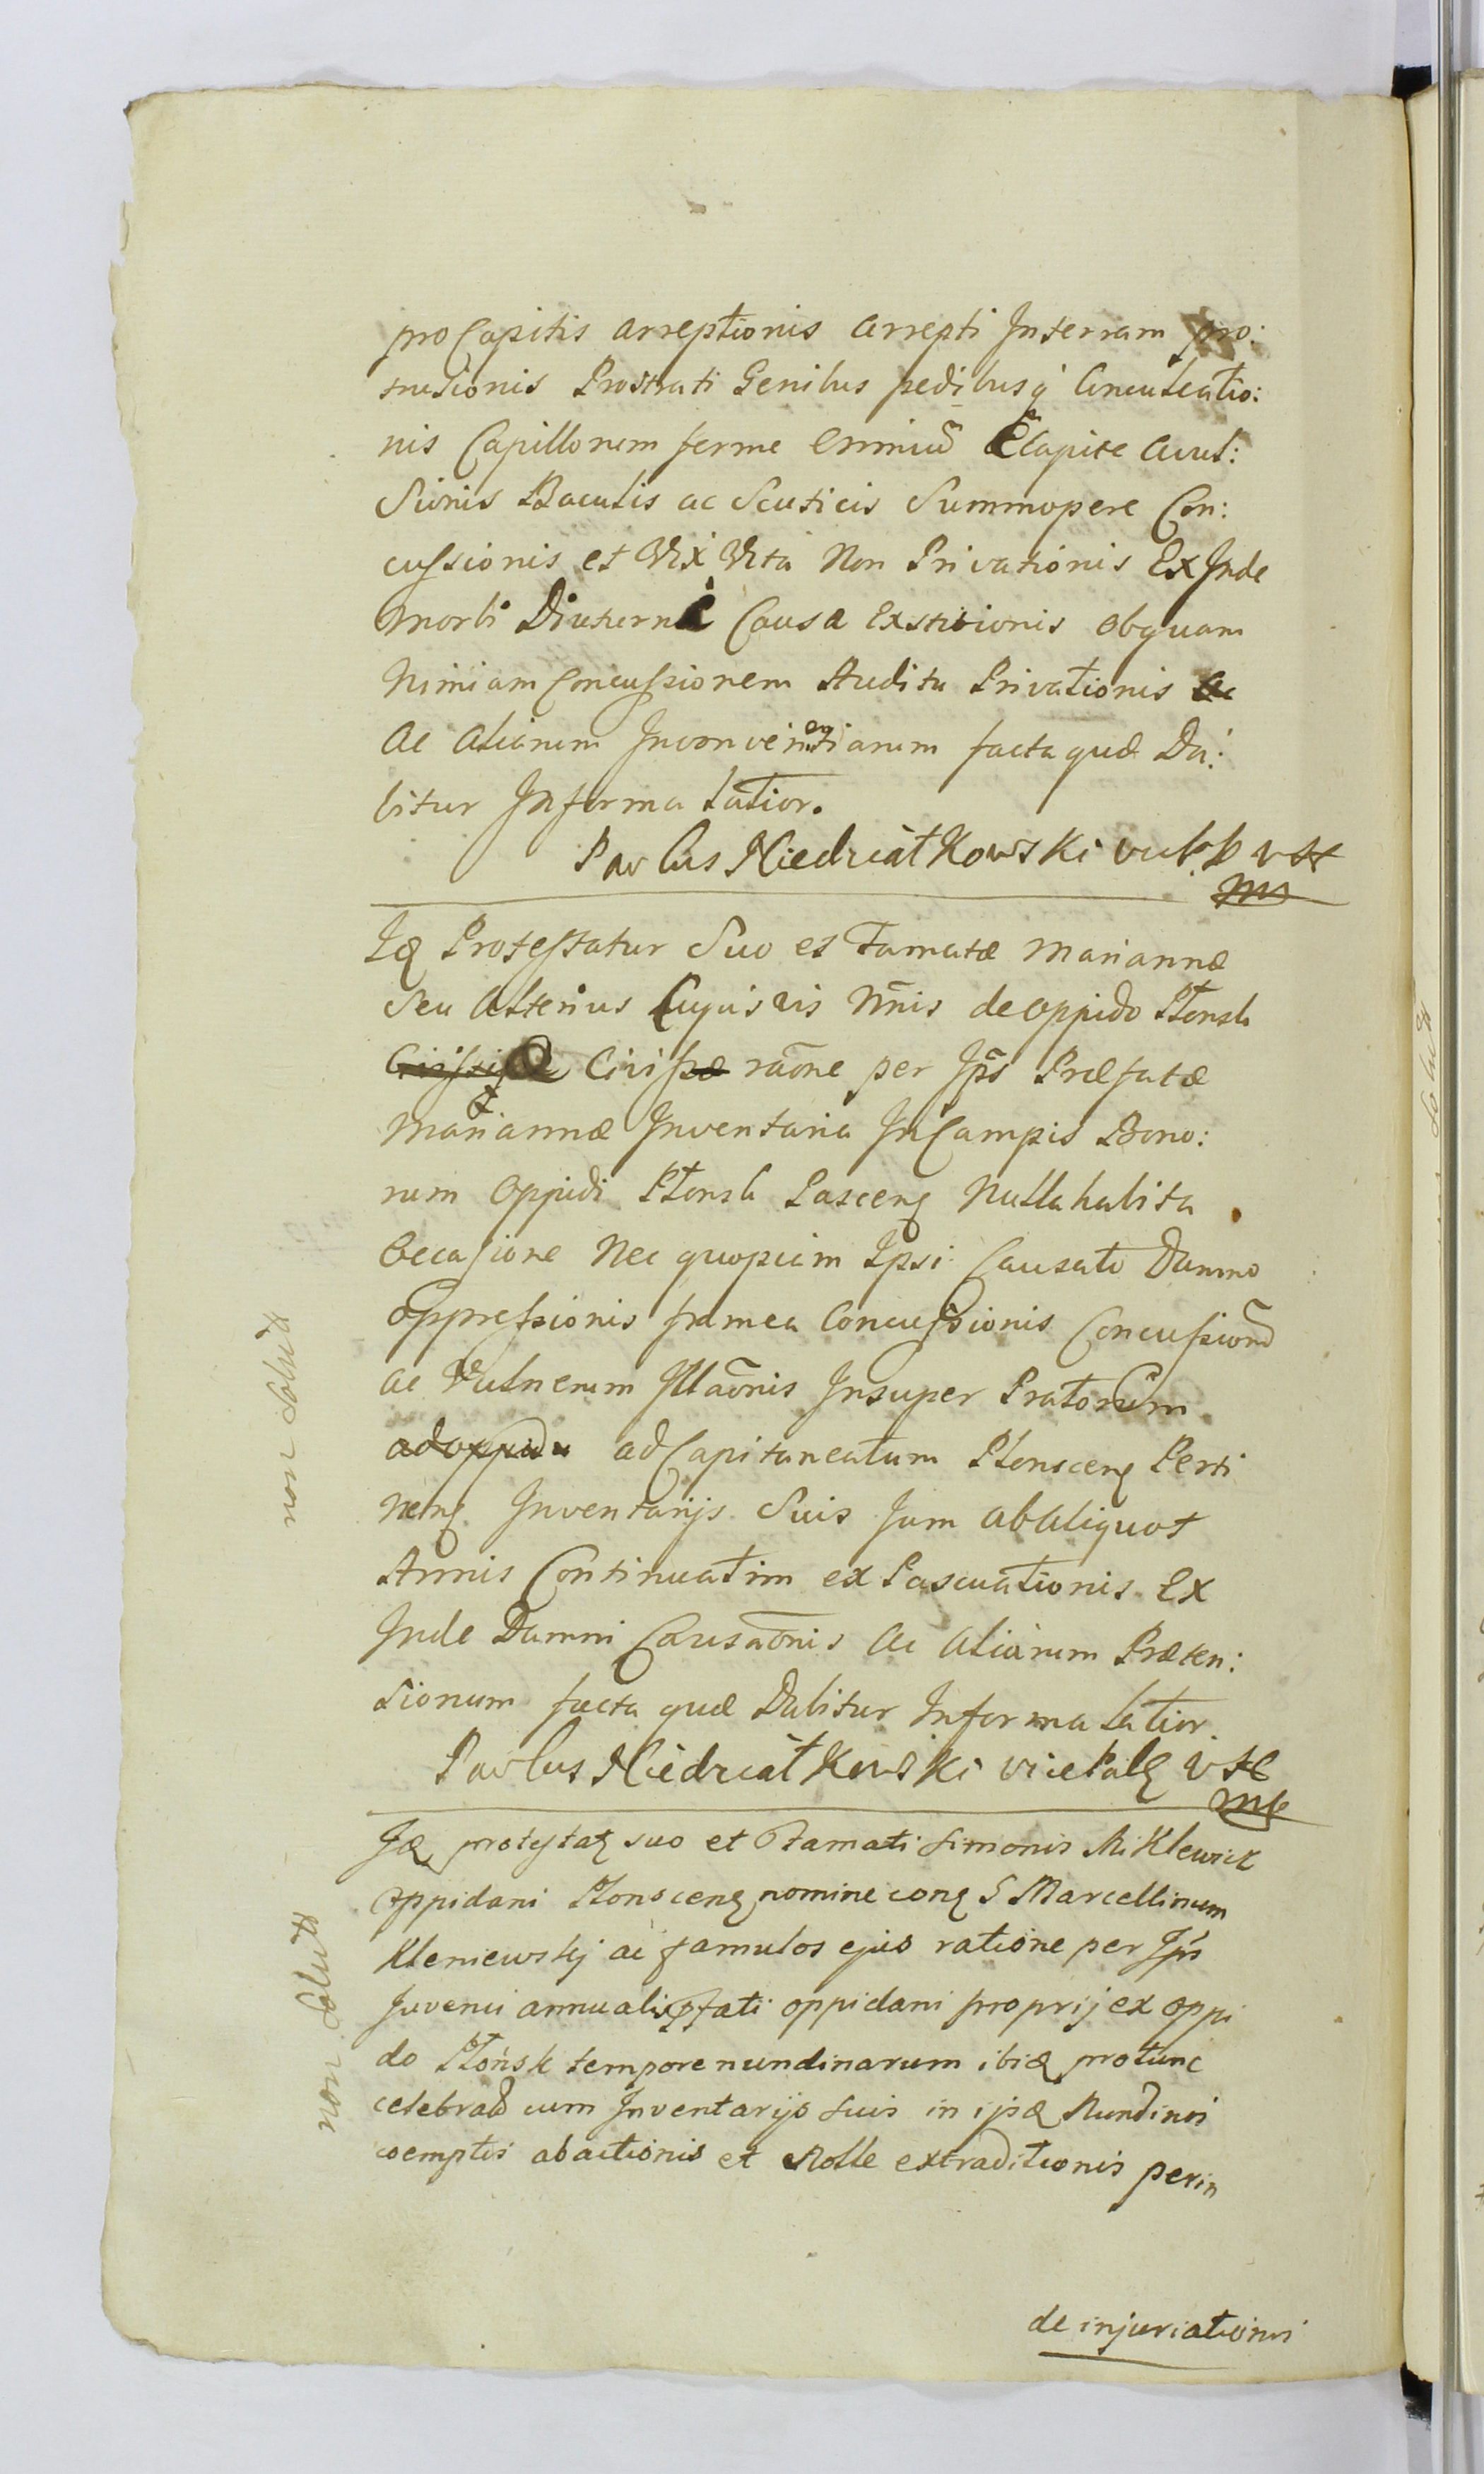 pro Capitis arreptionis arrepti In terram pro:
strusionis Prostrati Genibus pedibusq Conculcatio:
nis Capillorum ferme Omniũ è Capite Avul:
sionis Baculis ac Scuticis Summopere Con:
cussionis et Vix Vita Non Privationis Ex Inde
Morbi Diuturni Causa Exstitionis ob quam
Nimiam Concussionem Auditu Privationis
Ac Aliarum Inconvenientiarum facta quæ Da:
bitur In forma latior.
Paulus Niedziałkowski
Protestatur Suo et Famatæ Mariannæ
Seu Alterius Cujusvis Nñis de oppido Płonsk
raõne per Ipś Præfatæ
Mariannæ Inventaria In Campis Bono:
rum Oppidi Płonsk Nulla habita
Occasione Nec quopiam Ipsi Causato Damno
Oppressionis framea Concussionis
ac Vulnerum Illaõnis Insuper Pratorum
ad oppidu ad Capitaneatum Perti
Inventarijs Suis Jam ab Aliquot
Annis Continuatim ex Pascuationis Ex
Inde Damni Causaõnis Ac Aliarum Præten:
sionum facta quæ Dabitur In forma latior.
Paulus Niedziałkowski
suo et Famati Simonis Miklewicz
oppidani nomine S Marcellinum
Kleniewskj ac famulos ejus ratione per Ips
Juvenci annualis oppidani proprij ex oppi
do Płońsk tempore nundinarum protunc
cum Inventarijs suis in Nundinis
coemptis abactionis et Nolle extraditionis perin
de injuriationis
non solvit
non solvit